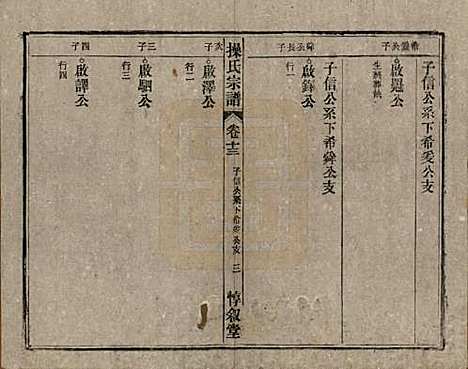 子信公系下希爱公支
希爱公子
啟冕公
生殁葬缺
子信公系下希舜公支
舜公長子
啟錦公
行一
操氏宗譜
卷十三
子信公系下希舜公支
三
惇叙堂
次子
啟澤公
行二
三子
啟駟公
行三
四子
啟譯公
行四